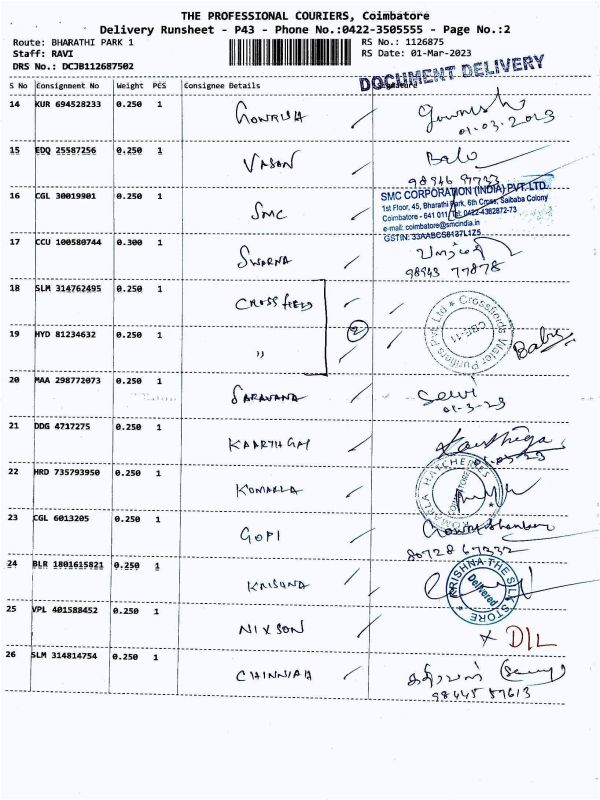 THE PROFESSIONAL COURIERS, Coimbatore
Delivery Runsheet - P43 - Phone No.:0422-3505555 - Page No.:2
Route: BHARATHI PARK 1 RS No.: 1126875
Staff: RAVI RS Date: 01-Mar-2023
DRS No.: DCJB112687502
DOCUMENT DELIVERY
S No Consignment No Weight PCS Consignee Details Signature
14 KUR 694528233 0.250 1 GOWRISH
01-03-2023
15 EDQ 25587256 0.250 1 VASAN Balu
98946 97733
16 CGL 30019901 0.250 1 SMC
SMC CORPORATION (INDIA) PVT. LTD.
1st Floor, 45, Bharathi Park, 6th Cross, Saibaba Colony
Coimbatore - 641 011 Tel: 0422-4382872-73
e-mail: coimbatore@smcindia.in
GSTIN: 33AABCS8137L1Z5
17 CCU 100580744 0.300 1 SWARNA
98943 77878
18 SLM 314762495 0.250 1 CROSSFIELD
2
Crossfields Water Purifiers Pvt Ltd
CBE-11
19 HYD 81234632 0.250 1 " Babu
20 MAA 298772073 0.250 1 SARAVANA Selvi
01-3-23
21 DDG 4717275 0.250 1 KAARTHGAI Karthiga
22 HRD 735793950 0.250 1 KOMARLA
KOMARLA HATCHERIES
COIMBATORE
23 CGL 6013205 0.250 1 GOPI
80728 67332
24 BLR 1801615821 0.250 1 KRISHNA
KRISHNA THE SILK STORE
Delivered
25 VPL 401588452 0.250 1 NIXSON X D/L
26 SLM 314814754 0.250 1 CHINNIAH
98445 87613